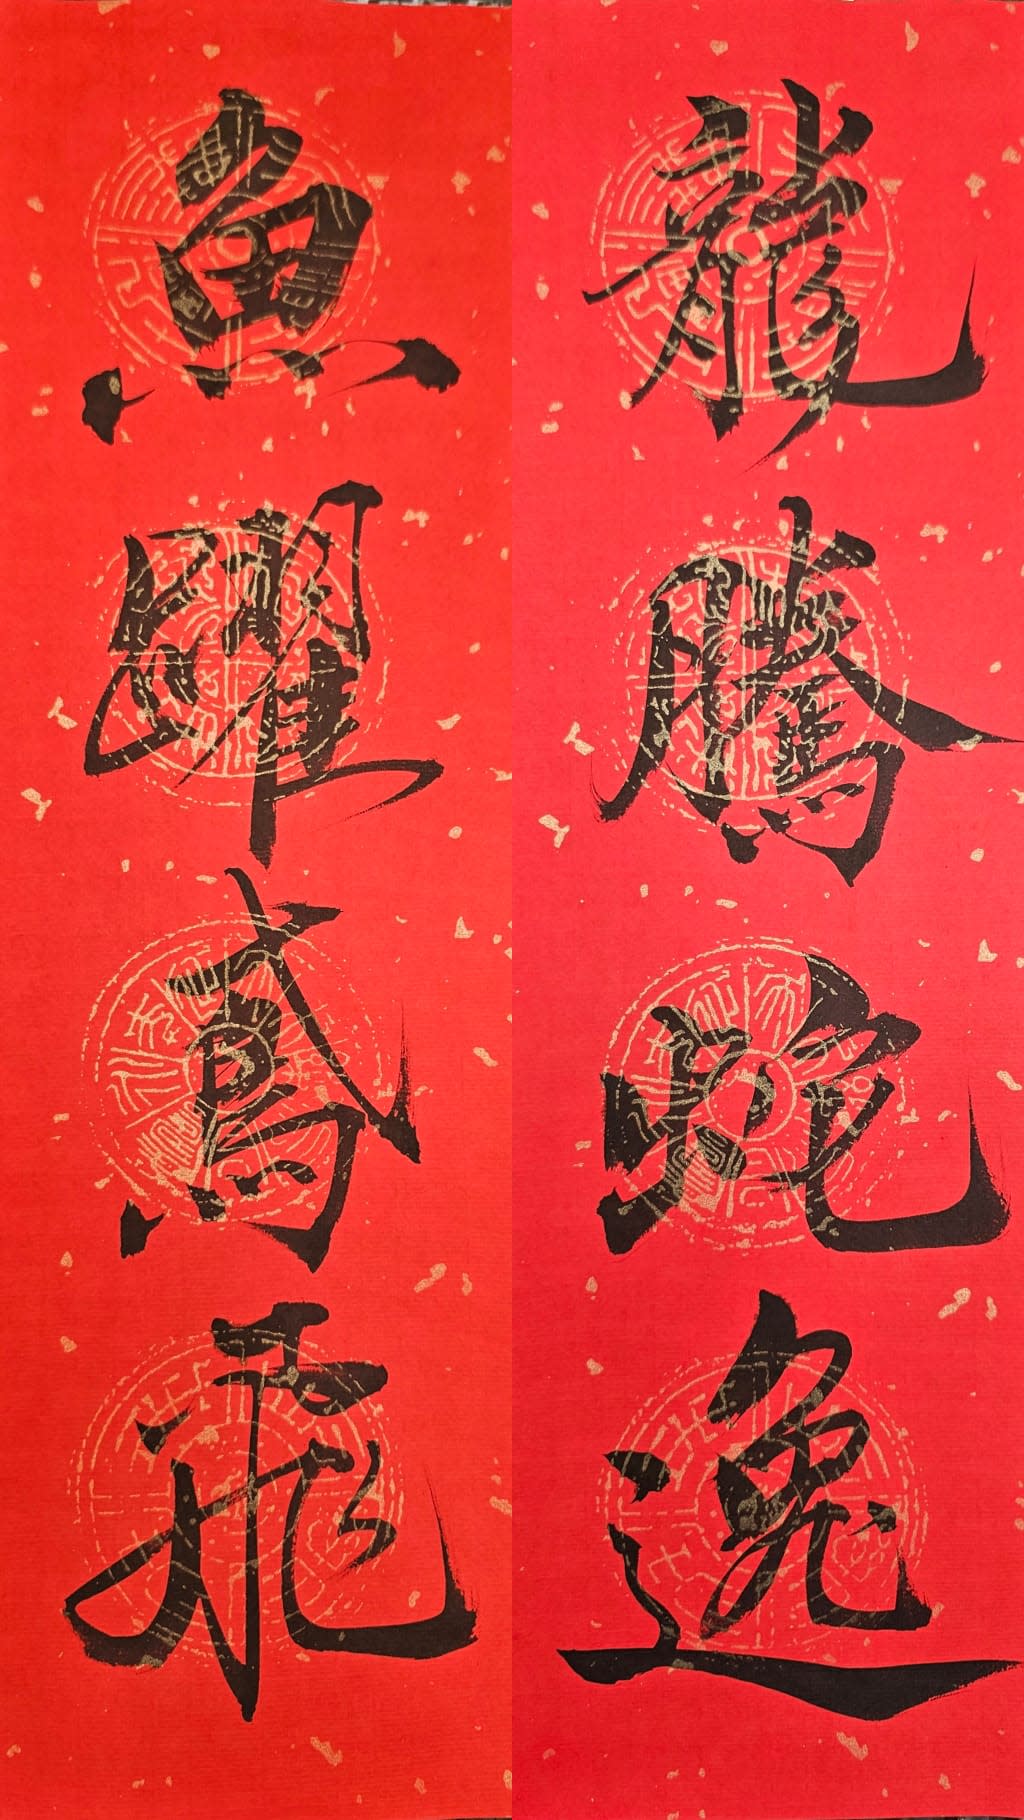 龍騰蛇逸
魚躍鳶飛